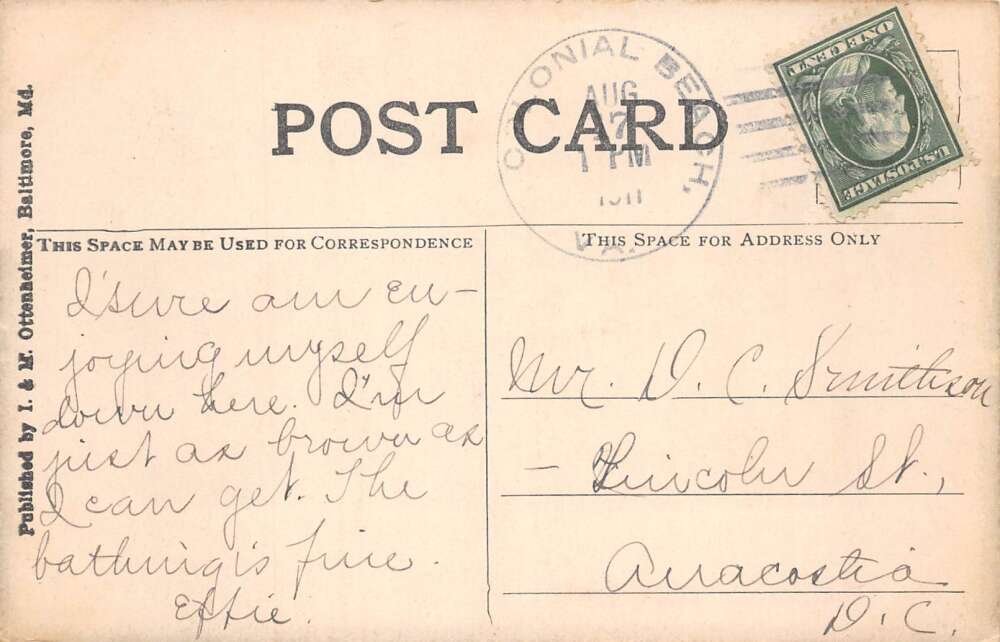 Published by I. & M. Ottenheimer, Baltimore, Md.
POST CARD
COLONIAL BEACH,
VA.
AUG
7
1 PM
1911
ONE CENT
U.S. POSTAGE
THIS SPACE MAY BE USED FOR CORRESPONDENCE
THIS SPACE FOR ADDRESS ONLY
I sure am en-
joying myself
down here. I'm
just as brown as
I can get. The
bathing is fine.
Effie.
Mr. D. C. Smithson
- Lincoln St.,
Anacostia
D.C.